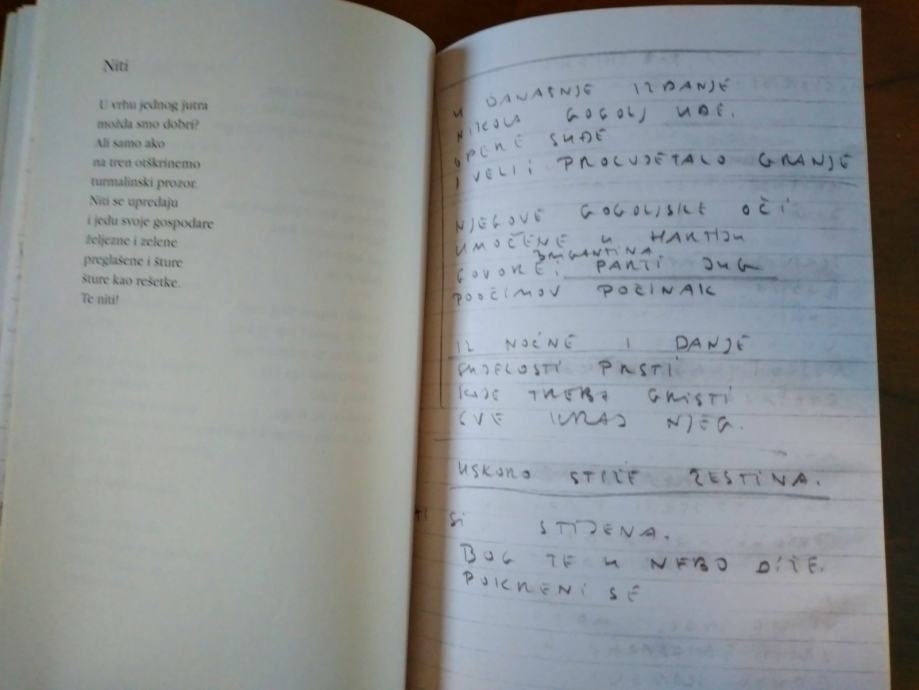 Niti
U vrhu jednog jutra
možda smo dobri?
Ali samo ako
na tren otškrinemo
turmalinski prozor.
Niti se upredaju
i jedu svoje gospodare
željezne i zelene
preglašene i šture
šture kao rešetke.
Te niti!
U DANAŠNJE IZDANJE
NIKOLA GOGOLJ UĐE.
OPERE SUĐE
I VELI: PROCVJETALO GRANJE
NJEGOVE GOGOLJSKE OČI
UMOČENE U HARTIJU
BRIGANTINA
GOVORE: PARTI JUG
POOČIMOV POČINAK
IZ NOĆNE I DANJE
PRSTI
KOJE TREBA GRISTI
SVE KRAJ NJEG.
USKORO STIŽE ŽESTINA.
TI SI STIJENA.
BOG TE U NEBO DIŽE.
POKRENI SE